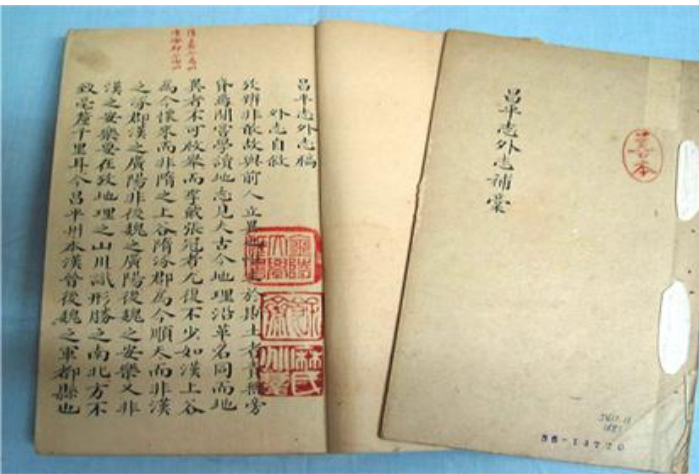 昌平志外志稿
外志自敘
攷辨非敢故與前人立異也於斯土者責無旁
貸焉聞嘗學讀地志見夫古今地理沿革名同而地
異者不可枚舉而李戴張冠者尤復不少如漢上谷
為今懷來而非隋之上谷隋涿郡為今順天而非漢
之涿郡漢之廣陽非後魏之廣陽後魏之安樂又非
漢之安樂要在攷地理之山川識形勝之南北方不
致毫釐千里耳今昌平州本漢晉後魏之軍都縣也
昌平志外志補彙
善本